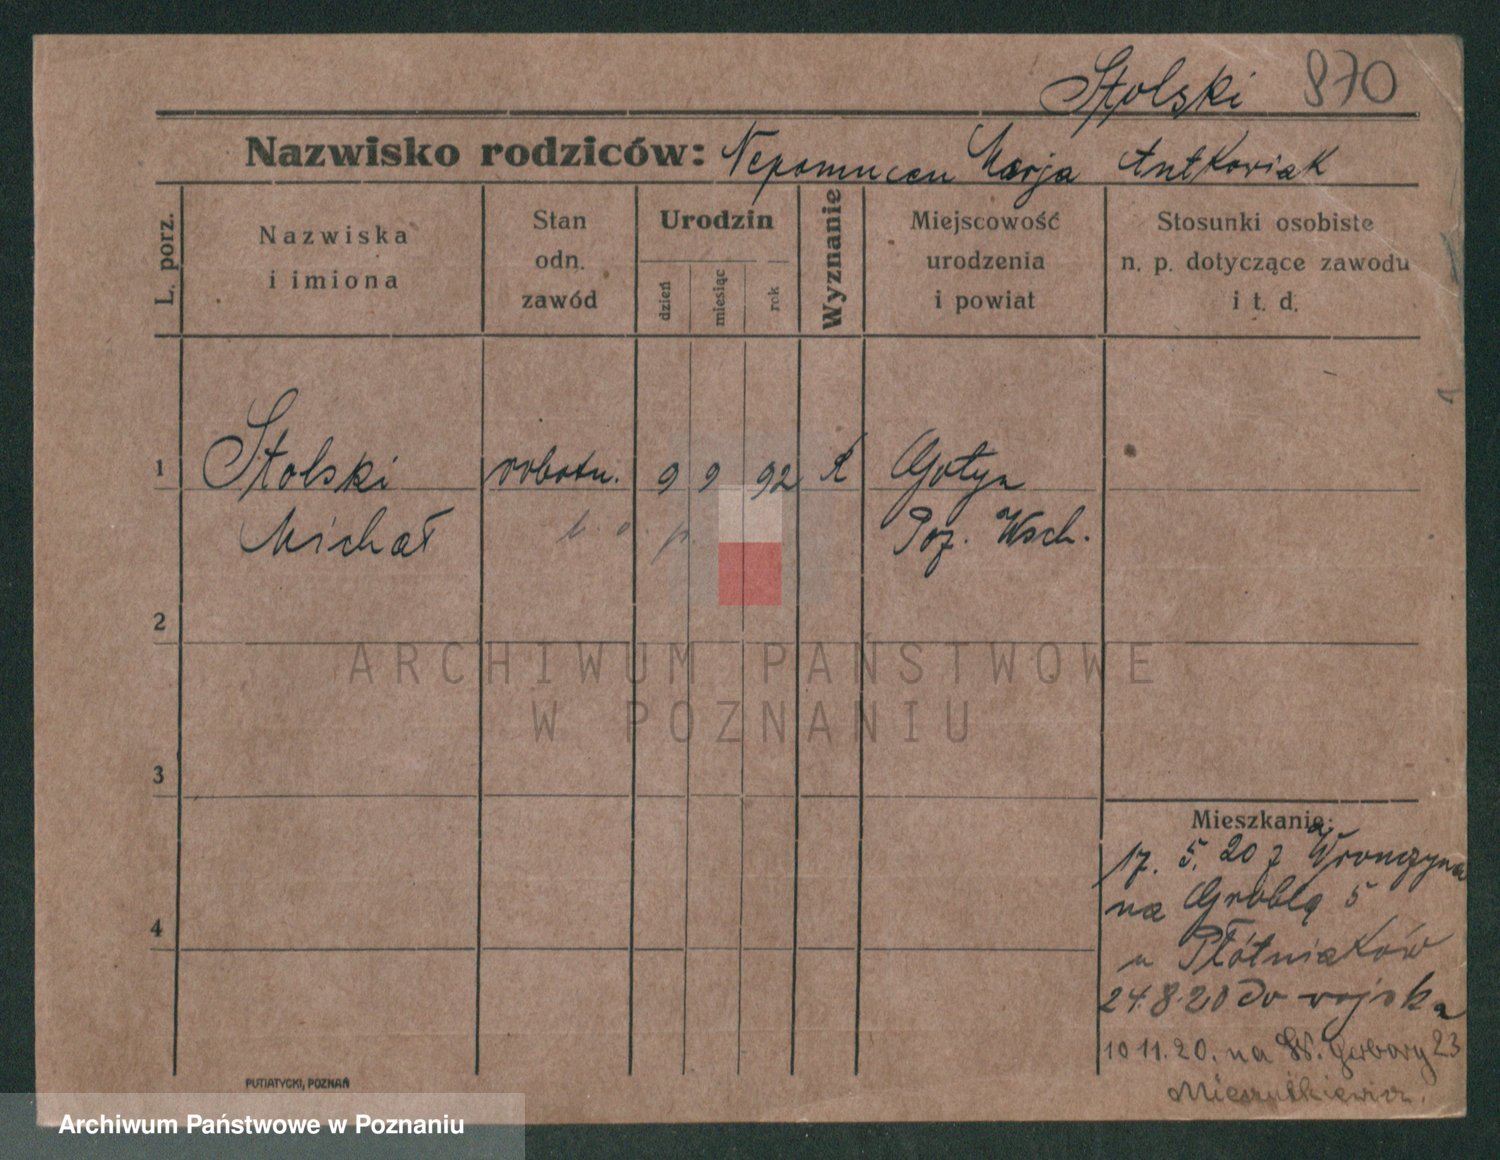 Stolski 870
Nazwisko rodziców: Nepomucen Marja Antkowiak
L. porz.
Nazwiska
i imiona
Stan
odn.
zawód
Urodzin
dzień
miesiąc
rok
Wyznanie
Miejscowość
urodzenia
i powiat
Stosunki osobiste
n. p. dotyczące zawodu
i t. d.
1 Stolski robotn. 9 9 92 k
Michał
Poz. Wsch.
2
ARCHIWUM PAŃSTWOWE
W POZNANIU
3
Mieszkanie:
17. 5. 20 z Wronczyna
na Groblą 5
u Płótniaków
4
24.8.20 do wojska
10 11. 20. na W. Garbary 23
PUTIATYCKI, POZNAŃ
Archiwum Państwowe w Poznaniu